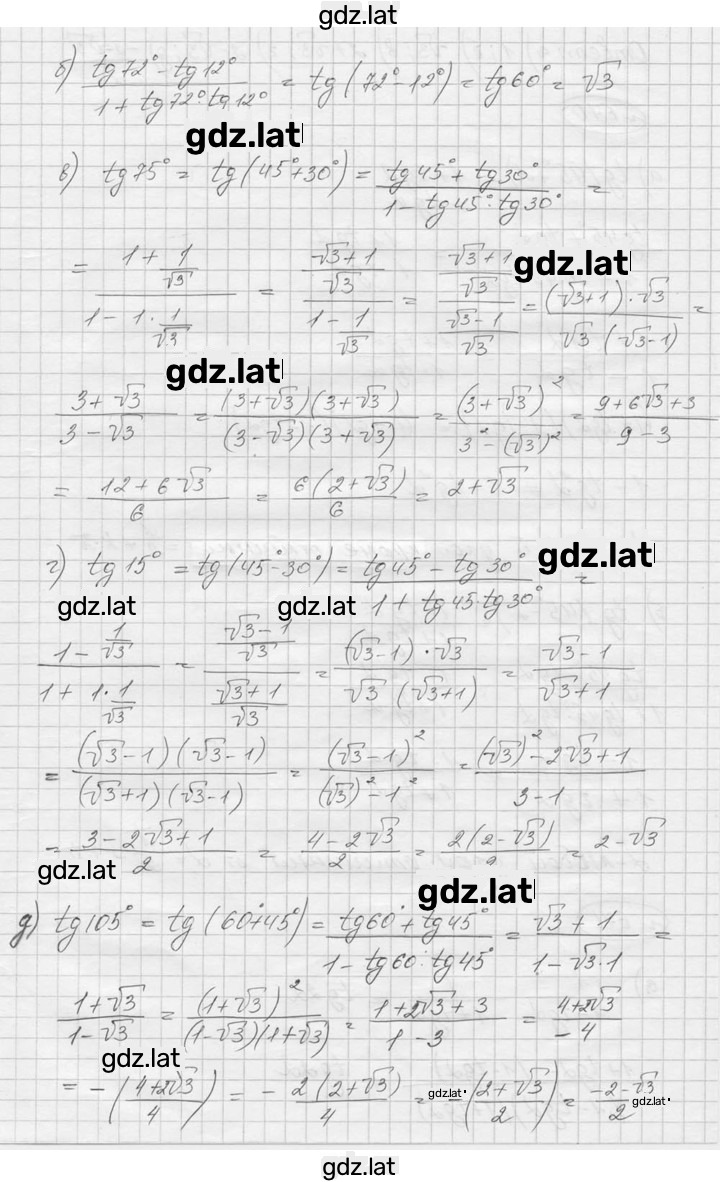 gdz.lat
б) (tg72° - tg12°)/(1 + tg72°·tg12°) = tg(72° - 12°) = tg60° = √3
gdz.lat
в) tg75° = tg(45° + 30°) = (tg45° + tg30°)/(1 - tg45°·tg30°) =
= (1 + 1/√3)/(1 - 1·1/√3) = ((√3 + 1)/√3)/(1 - 1/√3) = ((√3 + 1)/√3)/((√3 - 1)/√3) = ((√3 + 1)·√3)/(√3(√3 - 1)) =
gdz.lat
gdz.lat
(3 + √3)/(3 - √3) = ((3 + √3)(3 + √3))/((3 - √3)(3 + √3)) = (3 + √3)²/(3² - (√3)²) = (9 + 6√3 + 3)/(9 - 3)
= (12 + 6√3)/6 = 6(2 + √3)/6 = 2 + √3
г) tg15° = tg(45° - 30°) = (tg45° - tg30°)/(1 + tg45·tg30°) =
gdz.lat
gdz.lat gdz.lat
(1 - 1/√3)/(1 + 1·1/√3) = ((√3 - 1)/√3)/((√3 + 1)/√3) = ((√3 - 1)·√3)/(√3(√3 + 1)) = (√3 - 1)/(√3 + 1)
= ((√3 - 1)(√3 - 1))/((√3 + 1)(√3 - 1)) = (√3 - 1)²/((√3)² - 1²) = ((√3)² - 2√3 + 1)/(3 - 1)
= (3 - 2√3 + 1)/2 = (4 - 2√3)/2 = 2(2 - √3)/2 = 2 - √3
gdz.lat
gdz.lat
д) tg105° = tg(60° + 45°) = (tg60° + tg45°)/(1 - tg60°·tg45°) = (√3 + 1)/(1 - √3·1) =
(1 + √3)/(1 - √3) = (1 + √3)²/((1 - √3)(1 + √3)) = (1 + 2√3 + 3)/(1 - 3) = (4 + 2√3)/(-4)
gdz.lat
= -((4 + 2√3)/4) = - 2(2 + √3)/4 = -((2 + √3)/2) = (-2 - √3)/2
gdz.lat gdz.lat
gdz.lat